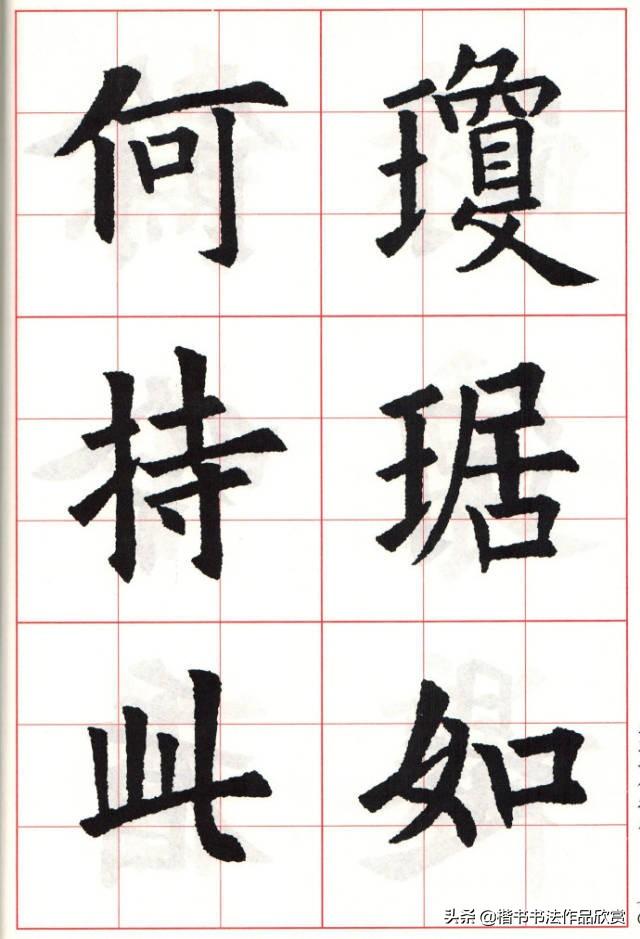 瓊琚如
何持此
头条 @楷书书法作品欣赏